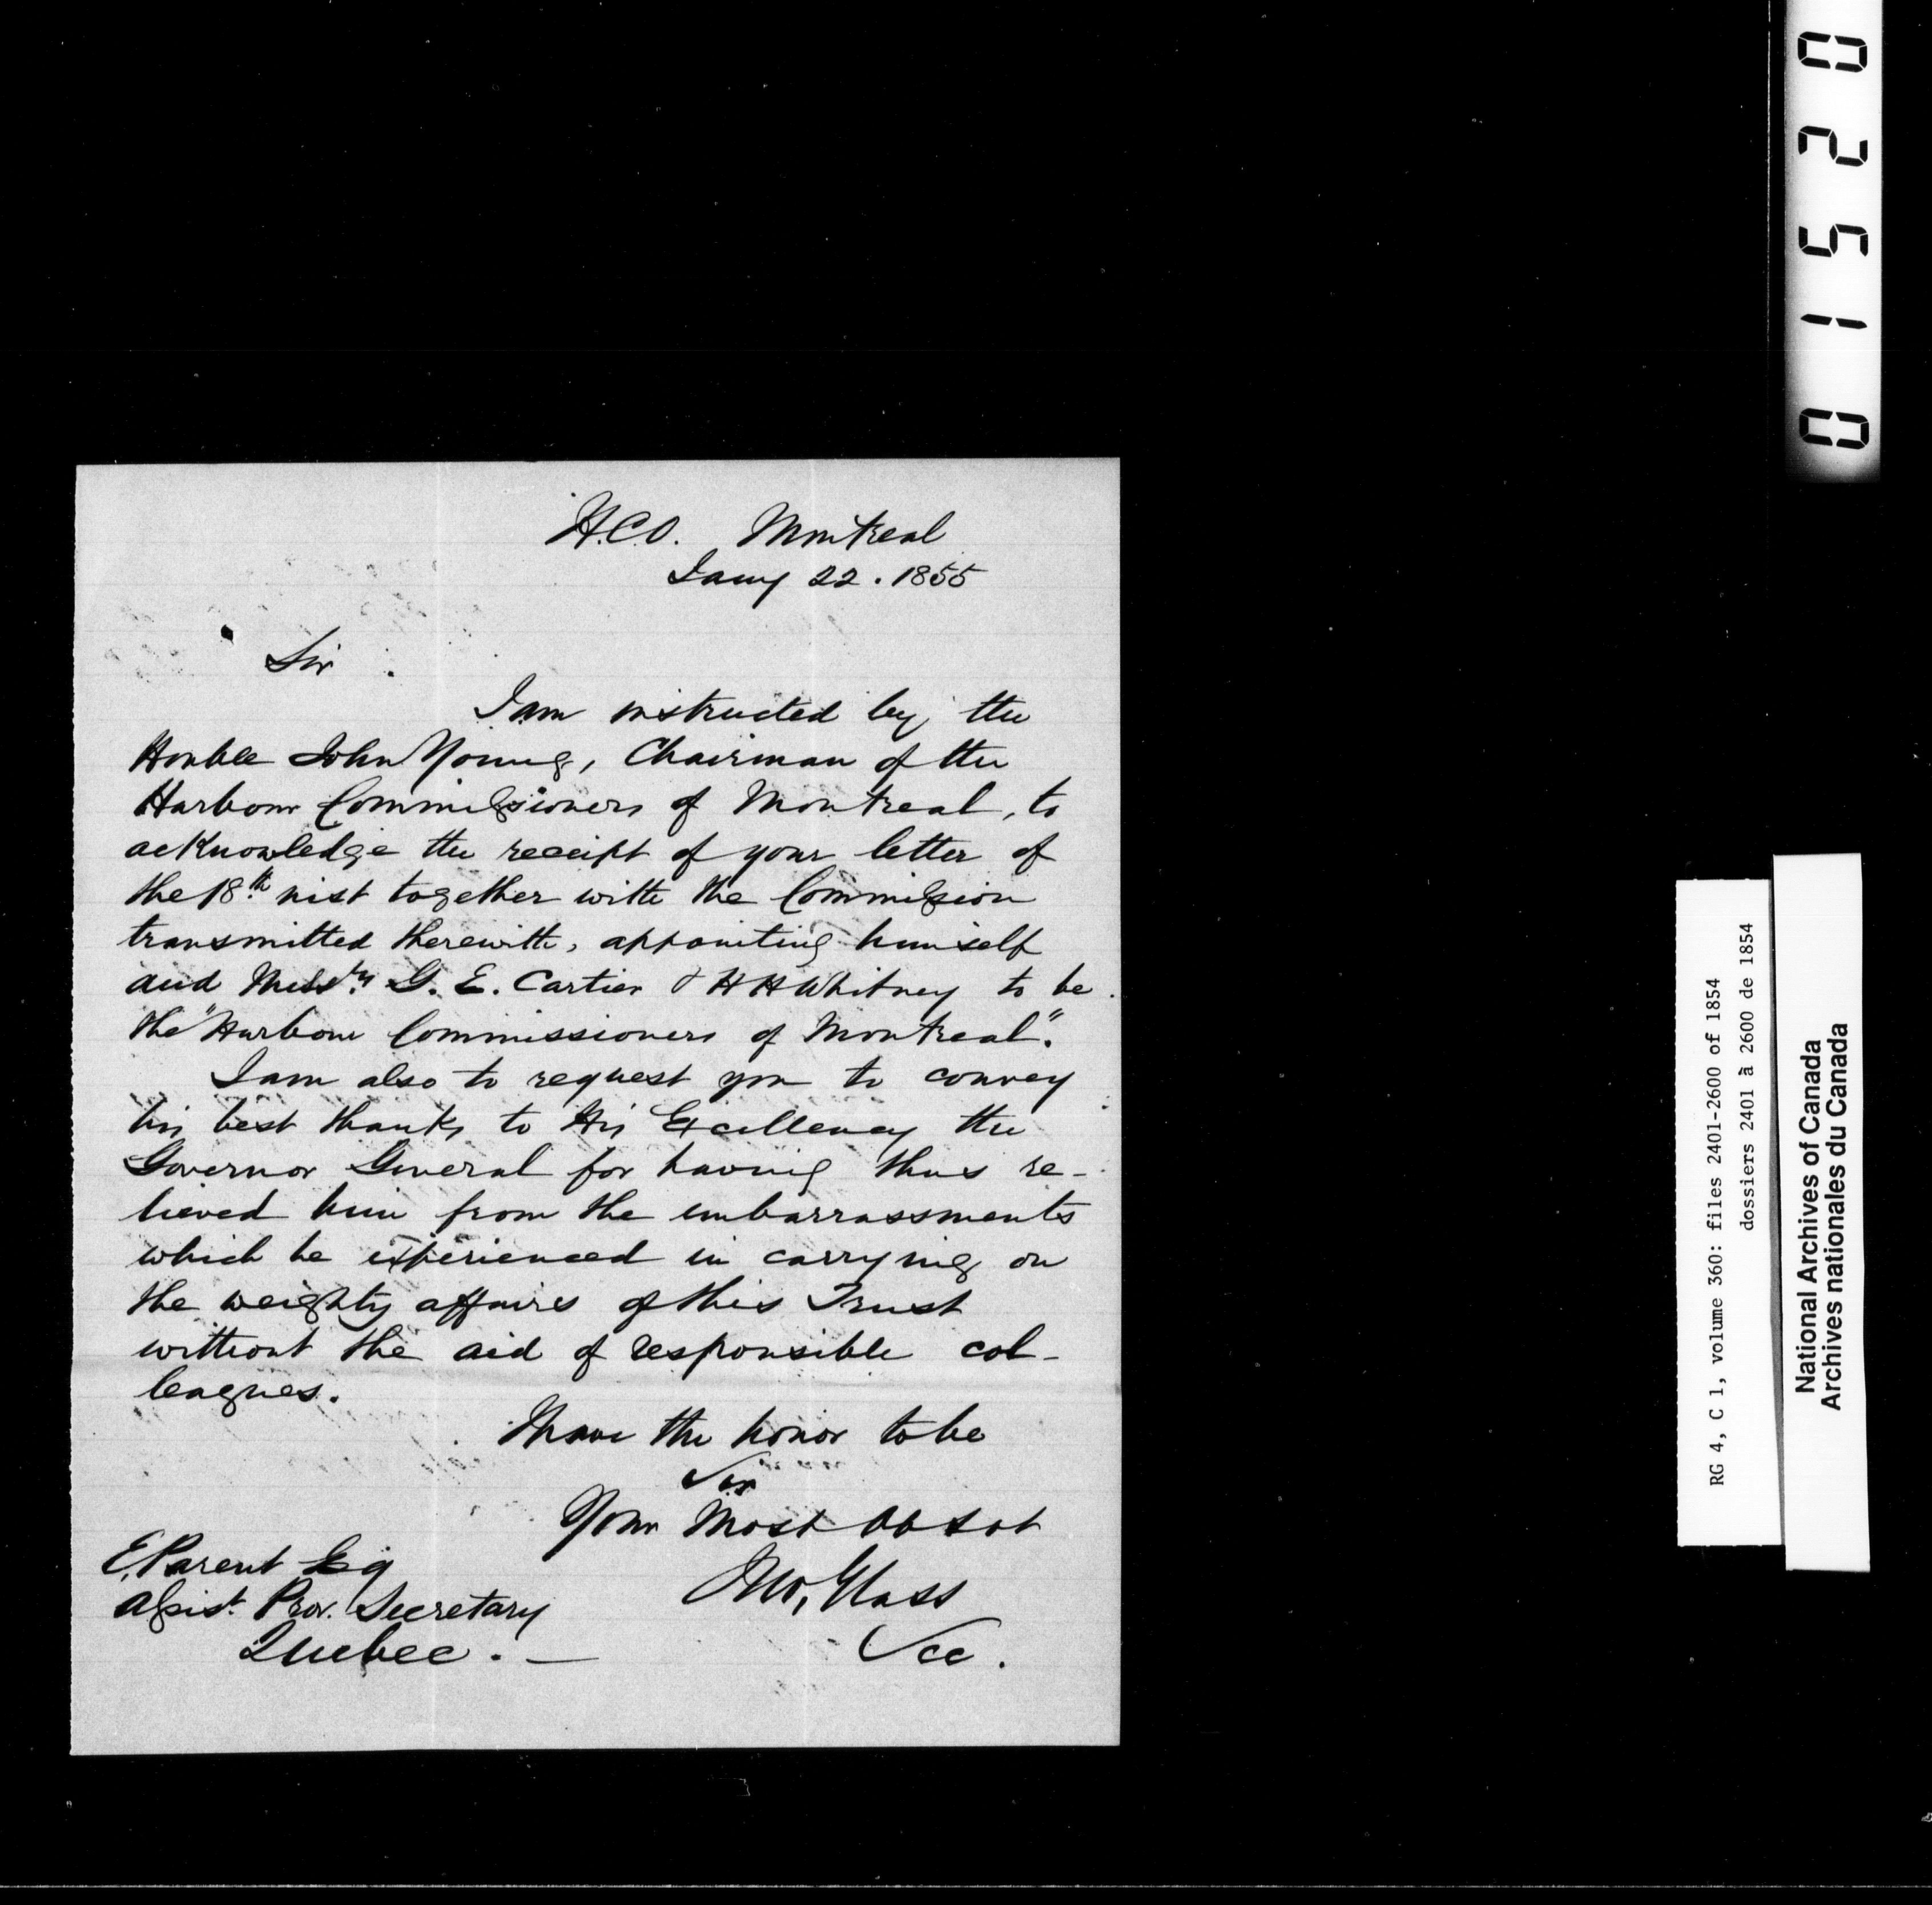 H.C.O. Montreal
Jany 22. 1855
Sir
I am instructed by the
Honble John Young, Chairman of the
Harbour Commissioners of Montreal, to
acknowledge the receipt of your letter of
the 18th inst together with the Commission
transmitted therewith, appointing himself
and Messrs G. E. Cartier & H H Whitney to be
the "Harbour Commissioners of Montreal".
I am also to request you to convey
his best thanks to His Excellency the
Governor General for having thus re-
lieved him from the embarrassments
which he experienced in carrying on
the weighty affairs of this Trust
without the aid of responsible col-
leagues.
I have the honor to be
Sir
Your Most Ob Sot
Jno, Glass
Sec.
E. Parent Esq
Assist. Prov. Secretary
Quebec. —
01520
RG 4, C 1, volume 360: files 2401-2600 of 1854
dossiers 2401 à 2600 de 1854
National Archives of Canada
Archives nationales du Canada